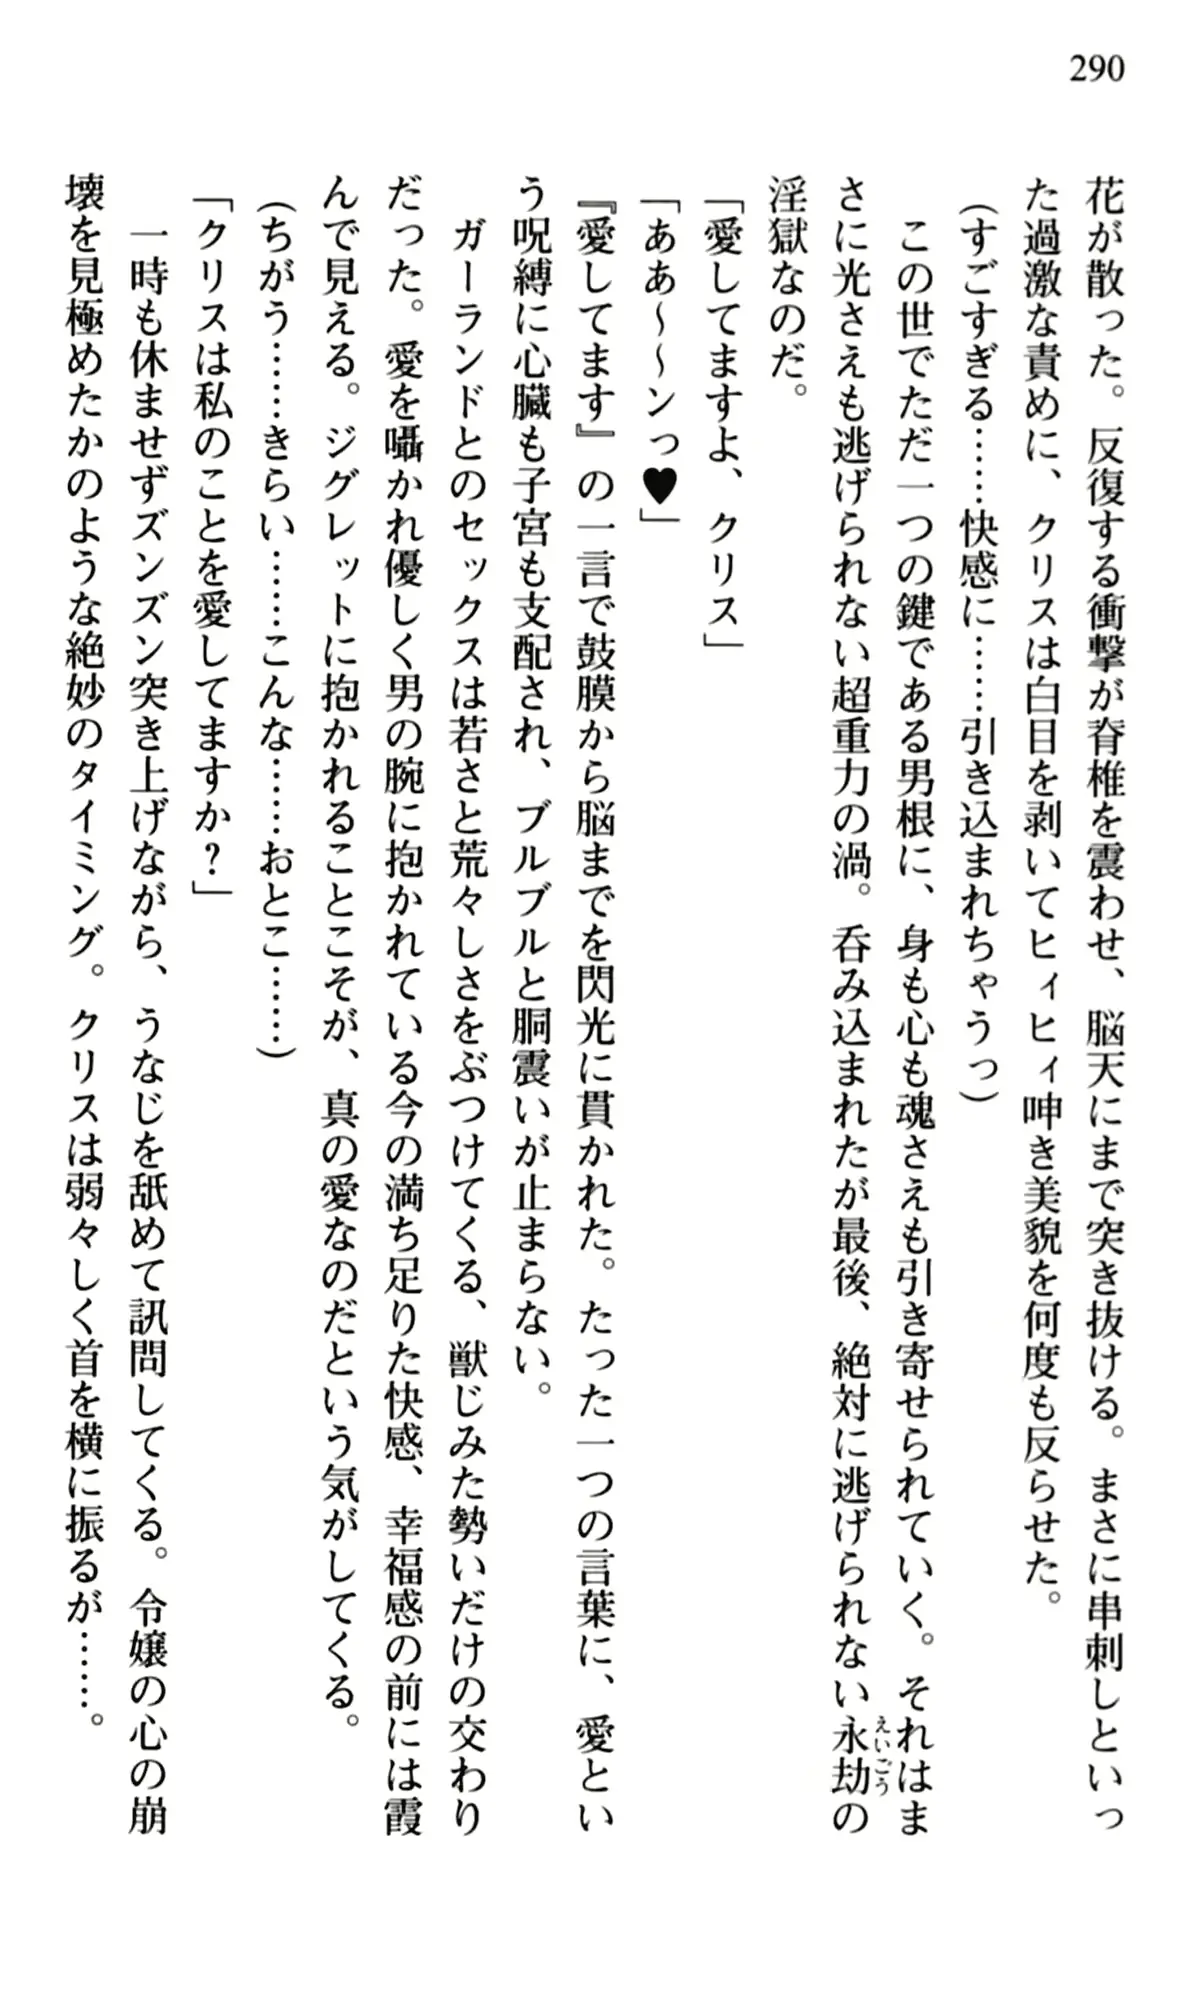 290
花が散った。反復する衝撃が脊椎を震わせ、脳天にまで突き抜ける。まさに串刺しといっ
た過激な責めに、クリスは白目を剥いてヒィヒィ呻き美貌を何度も反らせた。
(すごすぎる……快感に……引き込まれちゃうっ)
この世でただ一つの鍵である男根に、身も心も魂さえも引き寄せられていく。それはま
さに光さえも逃げられない超重力の渦。呑み込まれたが最後、絶対に逃げられない永劫の
えいごう
淫獄なのだ。
「愛してますよ、クリス」
「ああ～～ンっ♥」
『愛してます』の一言で鼓膜から脳までを閃光に貫かれた。たった一つの言葉に、愛とい
う呪縛に心臓も子宮も支配され、ブルブルと胴震いが止まらない。
ガーランドとのセックスは若さと荒々しさをぶつけてくる、獣じみた勢いだけの交わり
だった。愛を囁かれ優しく男の腕に抱かれている今の満ち足りた快感、幸福感の前には霞
んで見える。ジグレットに抱かれることこそが、真の愛なのだという気がしてくる。
(ちがう……きらい……こんな……おとこ……)
「クリスは私のことを愛してますか?」
一時も休ませずズンズン突き上げながら、うなじを舐めて訊問してくる。令嬢の心の崩
壊を見極めたかのような絶妙のタイミング。クリスは弱々しく首を横に振るが……。